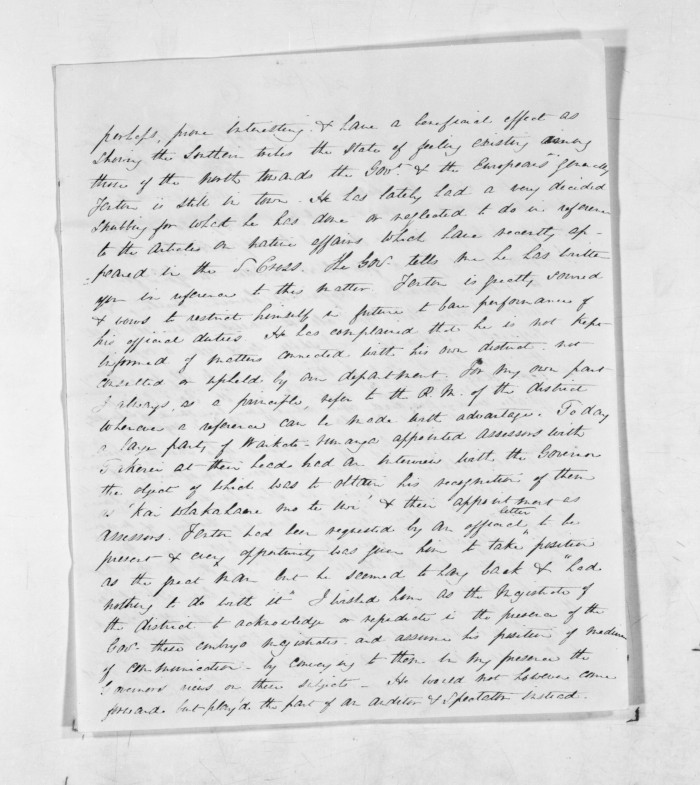 perhaps, prove interesting & have a beneficial effect as
shewing the Southern tribes the state of feeling existing among
those of the North towards the Govt. & the Europeans generally
Fenton is still in town. He has lately had a very decided
snubbing for what he has done or neglected to do in reference
to the articles on native affairs which have recently ap-
-peared in the S. Cross. The Govr. tells me he has written
you in reference to this matter. Fenton is greatly soured
& vows to restrict himself in future to bare performance of
his official duties. He has complained that he is not kept
informed of matters connected with his own district, not
consulted or upheld by our department. For my own part
I always, as a principle, refer to the R.M. of the district
whenever a reference can be made with advantage. Today
a large party of Waikato runanga appointed assessors with
at their head had an interview with the Governor
the object of which was to obtain his recognition of them
as 'Kai Whakahaere mo te iwi' & their appointment as
assessors. Fenton had been requested by an official letter to be
present & every opportunity was given him to take position
as the great man but he seemed to hang back & "had
nothing to do with it" I wished him as the Magistrate of
the district to acknowledge or repudiate in the presence of the
Govr. these embryo magistrates and assume his position of medium
of communication - by conveying to them in my presence the
Governors views on these subjects - He would not however come
forward but play'd the part of an auditor & Spectator instead.